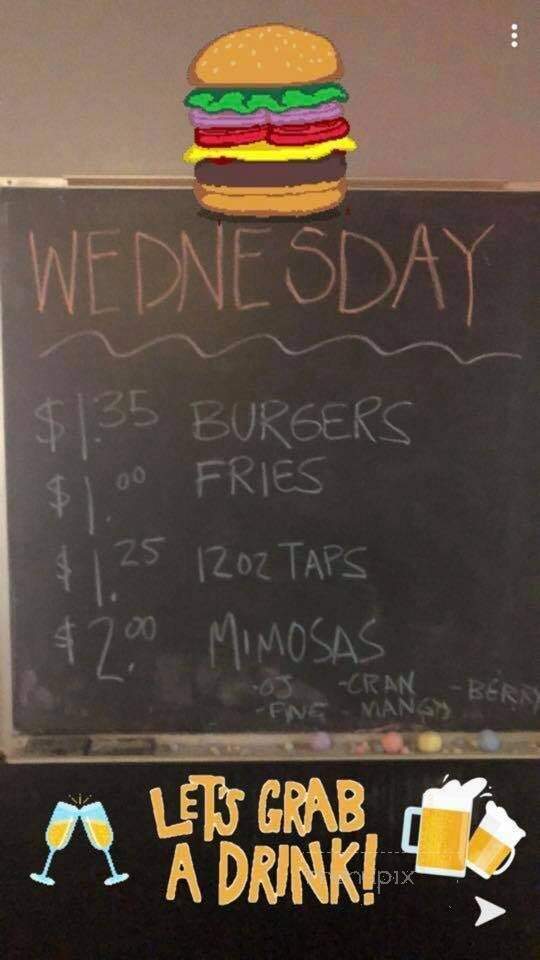 WEDNESDAY
$1.35 BURGERS
$1.00 FRIES
$1.25 12OZ TAPS
$2.00 MIMOSAS
-OJ -CRAN -BERRY
-PINE -MANGO
LET'S GRAB
A DRINK!